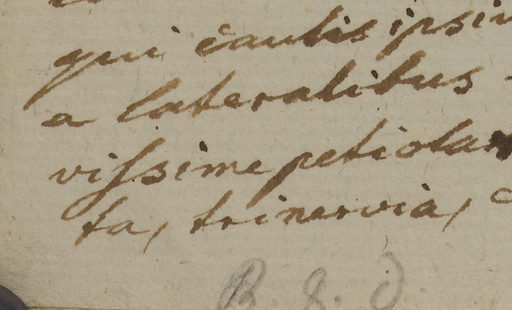 qui caulis ipsiu
a lateralibus
vissime petiola
ta, trinervia,
B. g. d